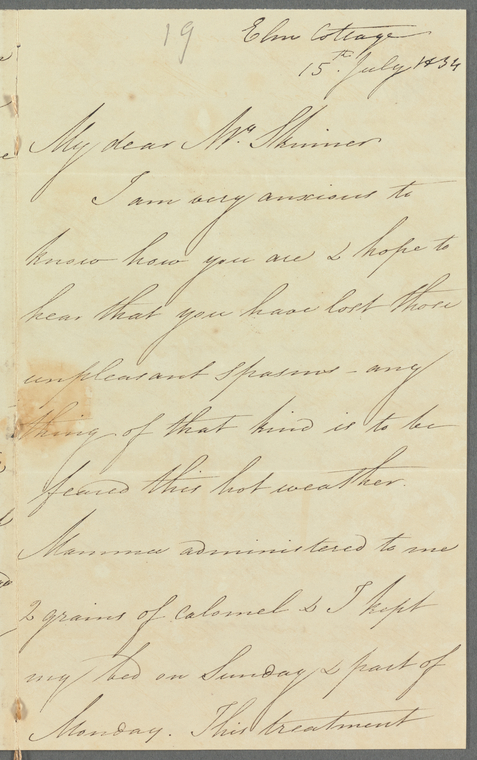 19
Elm Cottage
15th July 1834
My dear Mrs Skinner
I am very anxious to
know how you are & hope to
hear that you have lost those
unpleasant spasms - any
thing of that kind is to be
feared this hot weather.
Mamma administered to me
2 grains of calomel & I kept
my bed on Sunday & part of
Monday. This treatment